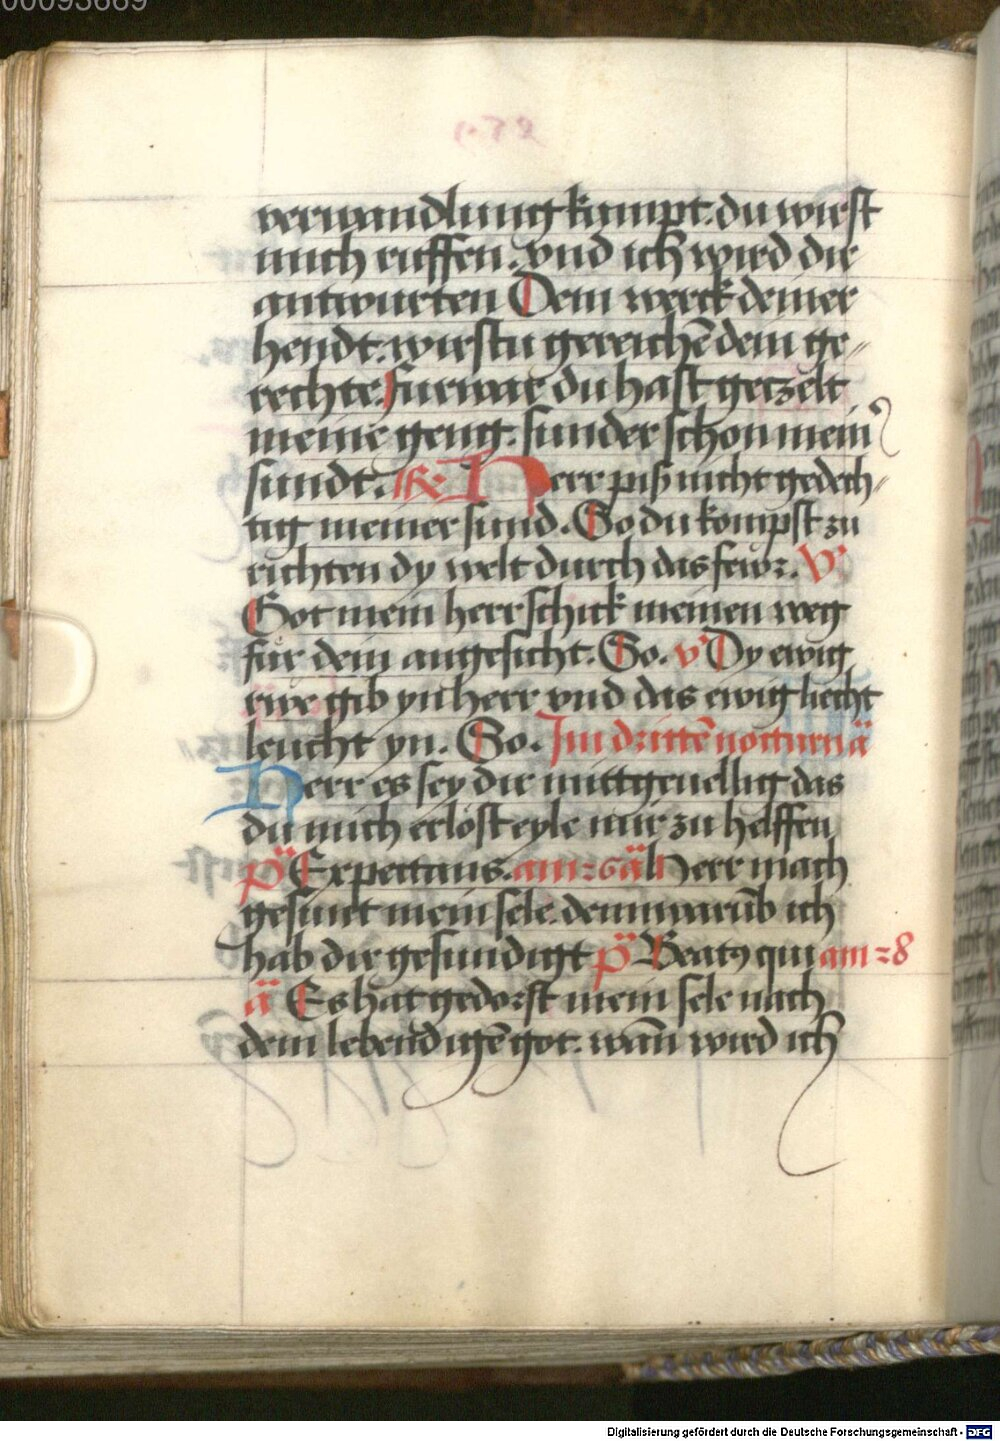 00093669
verwandlung kumpt. du wirst
mich ruffen. vnd ich wird dir
antwurten Dem werck deiner
hendt. wirstu gereichē dem ge-
rechtē. furwar du hast getzelt
meine geng. sunder schon mein
sundt. R Herr piß nicht gedech-
tig meiner sund. So du kompst zu
richten dy welt durch das fewr. V
Got mein herr schick meinen weg
für dein angesicht. So. v Dy ewig
rwe gib yn herr vnd das ewig liecht
leucht yn. So. Im drittē nocturn ä
Herr es sey dir mittgeuellig das
du mich erlöst eyle mir zu helffen
p̈s Expectans. am 26 ä Herr mach
gesunt mein sele. denn warūb ich
hab dir gesundigt p̈s Beatꝰ qui am 28
ä Es hat gedorst mein sele nach
dem lebendigē got. wān wird ich
Digitalisierung gefördert durch die Deutsche Forschungsgemeinschaft - DFG